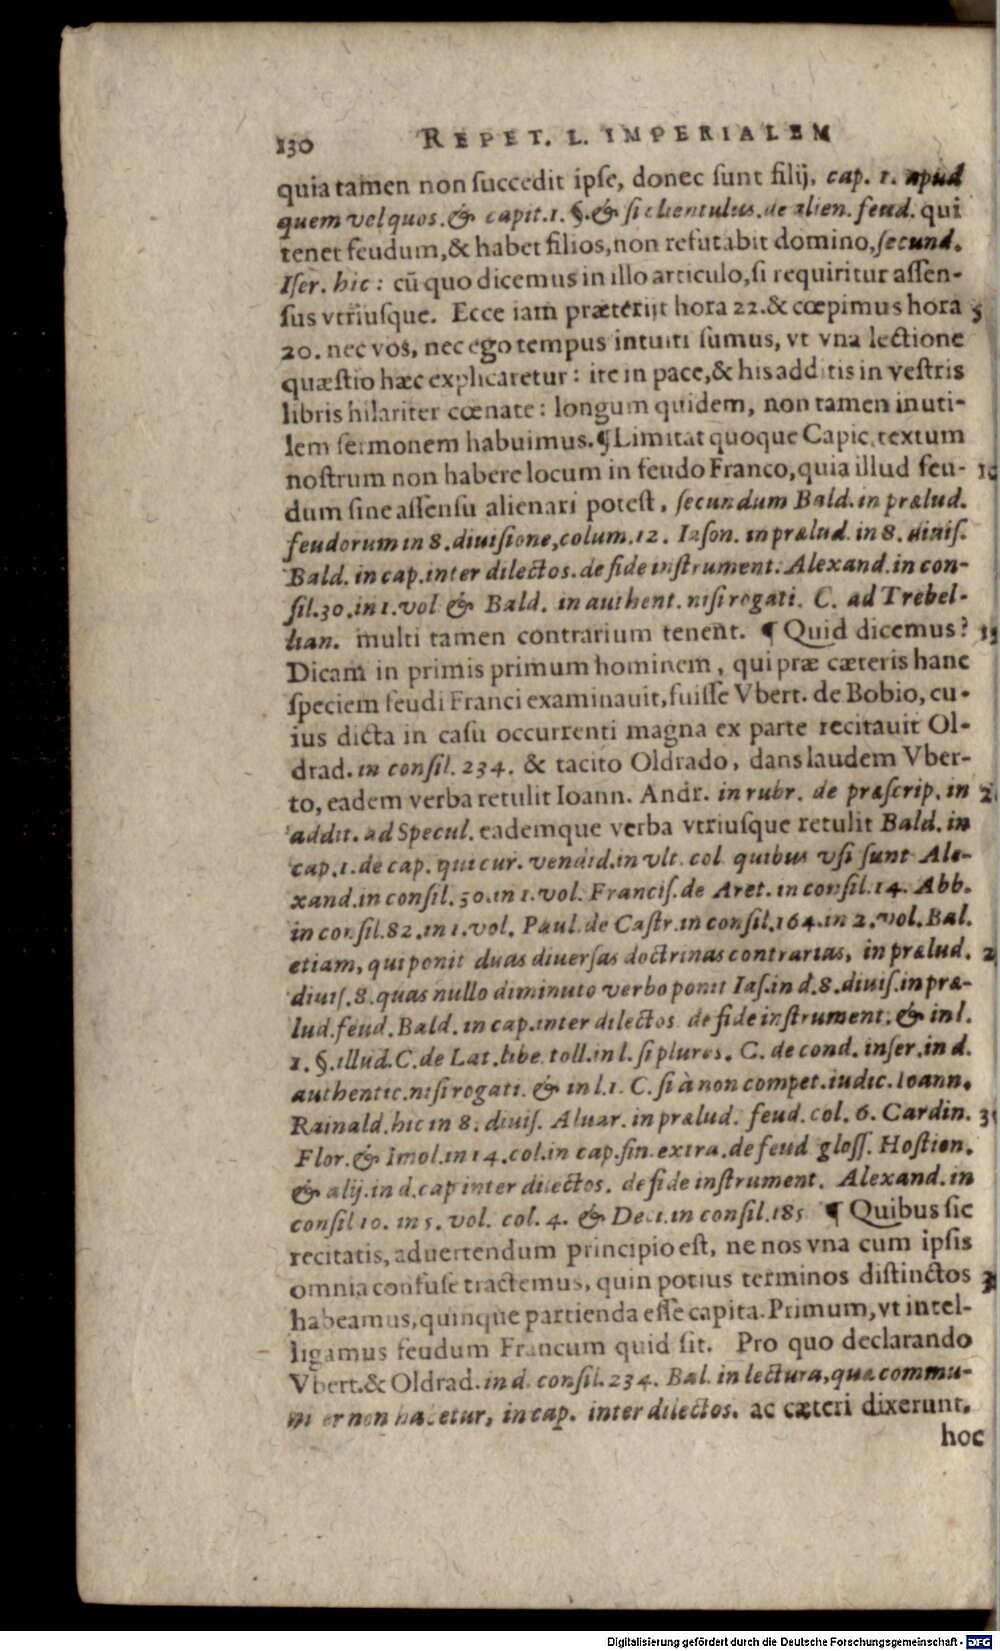 130 REPET. L. IMPERIALEM
quia tamen non succedit ipse, donec sunt filij, cap. 1. apud
quem vel quos. & capit. 1. §. & si clientulus. de alien. feud. qui
tenet feudum, & habet filios, non refutabit domino, secund.
Iser. hic: cū quo dicemus in illo articulo, si requiritur assen-
sus vtriusque. Ecce iam præterijt hora 22. & cœpimus hora 5
20. nec vos, nec ego tempus intuiti sumus, vt vna lectione
quæstio hæc explicaretur: ite in pace, & his additis in vestris
libris hilariter cœnate: longum quidem, non tamen inuti-
lem sermonem habuimus. ¶ Limitat quoque Capic. textum
nostrum non habere locum in feudo Franco, quia illud feu- 10
dum sine assensu alienari potest, secundum Bald. in prælud.
feudorum in 8. diuisione, colum. 12. Iason. in prælud. in 8. diuis.
Bald. in cap. inter dilectos. de fide instrument. Alexand. in con-
sil. 30. in 1. vol & Bald. in authent. nisi rogati. C. ad Trebel-
lian. multi tamen contrarium tenent. ¶ Quid dicemus? 15
Dicam in primis primum hominem, qui præ cæteris hanc
speciem feudi Franci examinauit, fuisse Vbert. de Bobio, cu-
ius dicta in casu occurrenti magna ex parte recitauit Ol-
drad. in consil. 234. & tacito Oldrado, dans laudem Vber-
to, eadem verba retulit Ioann. Andr. in rubr. de præscrip. in 2
addit. ad Specul. eademque verba vtriusque retulit Bald. in
cap. 1. de cap. qui cur. vendid. in vlt. col. quibus vsi sunt Ale-
xand. in consil. 30. in 1. vol. Francis. de Aret. in consil. 14. Abb.
in consil. 82. in 1. vol. Paul. de Castr. in consil. 164. in 2. vol. Bal.
etiam, qui ponit duas diuersas doctrinas contrarias, in prælud. 2
diuis. 8. quas nullo diminuto verbo ponit Ias. in d. 8. diuis. in præ-
lud. feud. Bald. in cap. inter dilectos. de fide instrument. & in l.
1. §. illud. C. de Lat. libe. toll. in l. si plures. C. de cond. inser. in d.
authentic. nisi rogati. & in l. 1. C. si à non compet. iudic. Ioann.
Rainald. hic in 8. diuis. Aluar. in prælud. feud. col. 6. Cardin. 3
Flor. & Imol. in 14. col. in cap. fin. extra. de feud. gloss. Hostien.
& alij. in d. cap inter dilectos. de fide instrument. Alexand. in
consil 10. in 5. vol. col. 4. & Deci. in consil. 185 ¶ Quibus sic
recitatis, aduertendum principio est, ne nos vna cum ipsis
omnia confuse tractemus, quin potius terminos distinctos 3
habeamus, quinque partienda esse capita. Primum, vt intel-
ligamus feudum Francum quid sit. Pro quo declarando
Vbert. & Oldrad. in d. consil. 234. Bal. in lectura, quæ commu-
niter non habetur, in cap. inter dilectos. ac cæteri dixerunt,
hoc
Digitalisierung gefördert durch die Deutsche Forschungsgemeinschaft - DFG